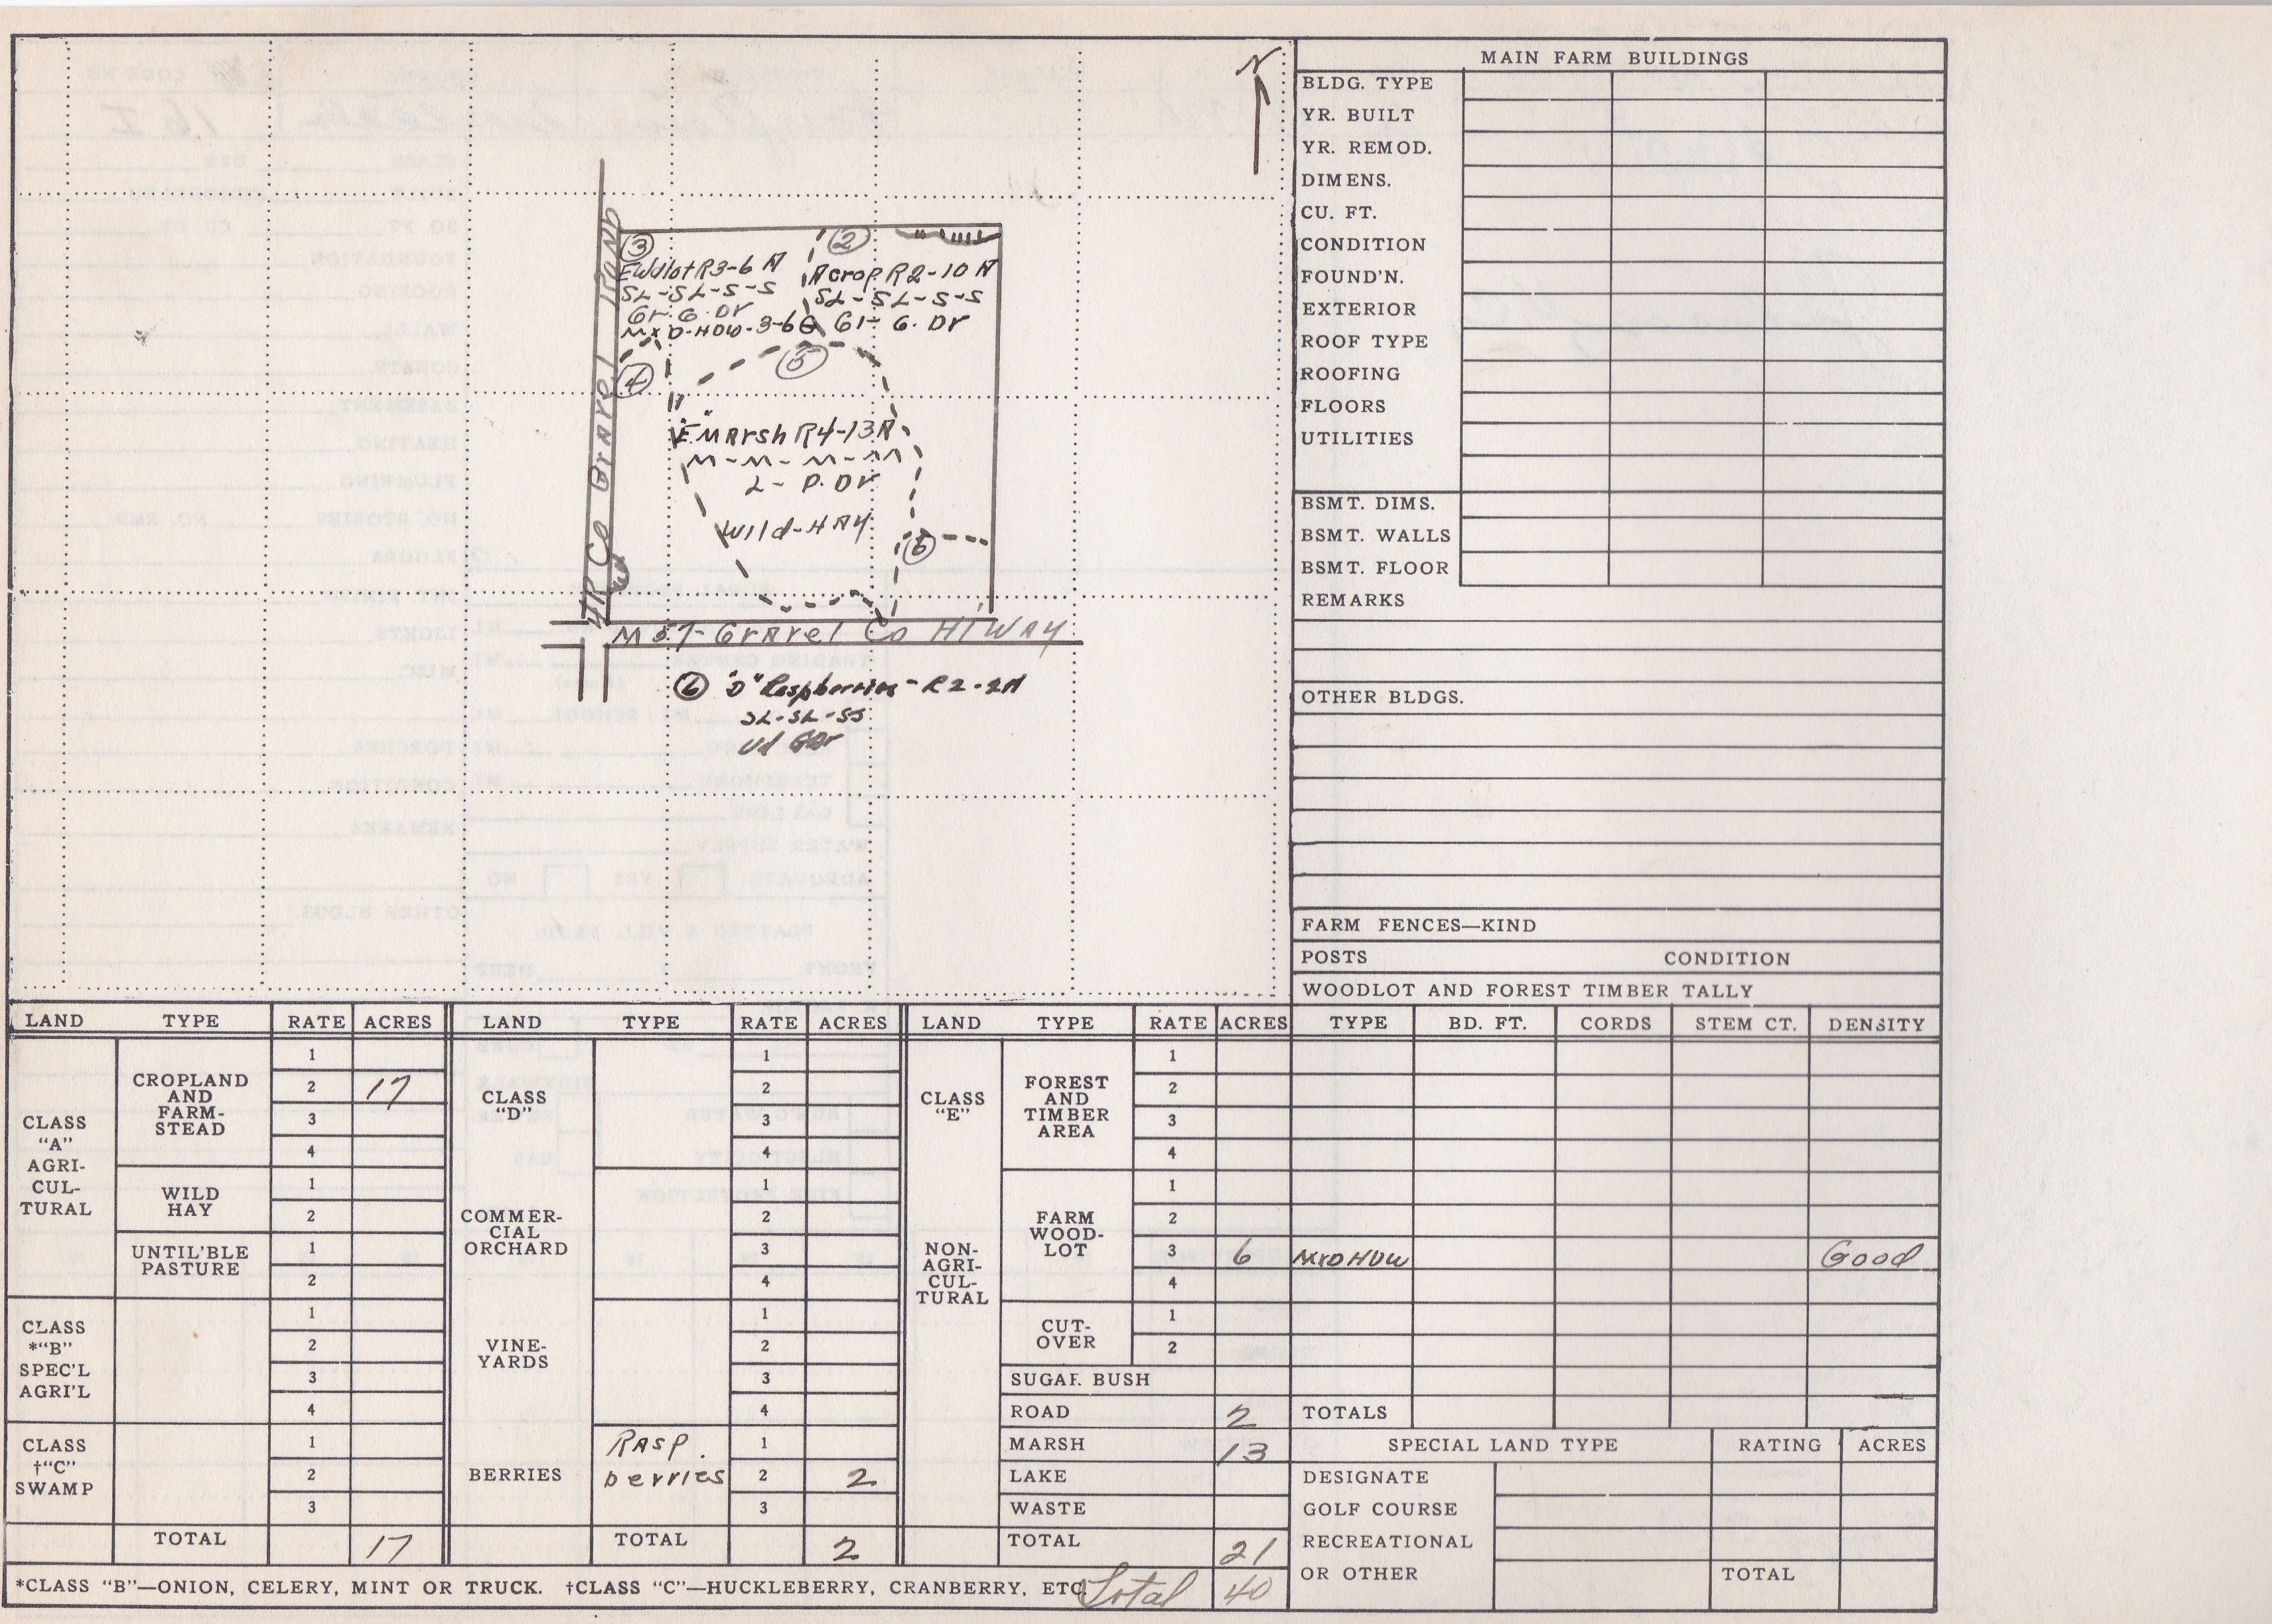 N
4R Co Gravel Road
③
EWdlot R3-6 A
SL-SL-S-S
Gr. G. Dr
MxD-HDW-3-6
②
A crop R2-10 A
SL-SL-S-S
G1- G. Dr
④
⑤
"E" Marsh R4-13A
M-M-M-M
L- P. Dr
Wild-HAY
⑥
M37-Gravel Co HiWAY
⑥ "D" Raspberries - R2-2A
SL-SL-SS
Ud GDr
MAIN FARM BUILDINGS
BLDG. TYPE
YR. BUILT
YR. REMOD.
DIMENS.
CU. FT.
CONDITION
FOUND'N.
EXTERIOR
ROOF TYPE
ROOFING
FLOORS
UTILITIES
BSMT. DIMS.
BSMT. WALLS
BSMT. FLOOR
REMARKS
OTHER BLDGS.
FARM FENCES—KIND
POSTS CONDITION
WOODLOT AND FOREST TIMBER TALLY
LAND TYPE RATE ACRES LAND TYPE RATE ACRES LAND TYPE RATE ACRES TYPE BD. FT. CORDS STEM CT. DENSITY
CLASS
"A"
AGRI-
CUL-
TURAL
CROPLAND
AND
FARM-
STEAD
1
2 17
3
4
WILD
HAY
1
2
UNTIL'BLE
PASTURE
1
2
CLASS
*"B"
SPEC'L
AGRI'L
1
2
3
4
CLASS
†"C"
SWAMP
1
2
3
TOTAL 17
CLASS
"D"
1
2
3
4
COMMER-
CIAL
ORCHARD
1
2
3
4
VINE-
YARDS
1
2
3
4
BERRIES
Rasp.
berries
1
2 2
3
TOTAL 2
CLASS
"E"
NON-
AGRI-
CUL-
TURAL
FOREST
AND
TIMBER
AREA
1
2
3
4
FARM
WOOD-
LOT
1
2
3 6 MXDHDW Good
4
CUT-
OVER
1
2
SUGAR BUSH
ROAD 2
MARSH 13
LAKE
WASTE
TOTAL 21
TOTALS
SPECIAL LAND TYPE RATING ACRES
DESIGNATE
GOLF COURSE
RECREATIONAL
OR OTHER TOTAL
*CLASS "B"—ONION, CELERY, MINT OR TRUCK. †CLASS "C"—HUCKLEBERRY, CRANBERRY, ETC. Total 40